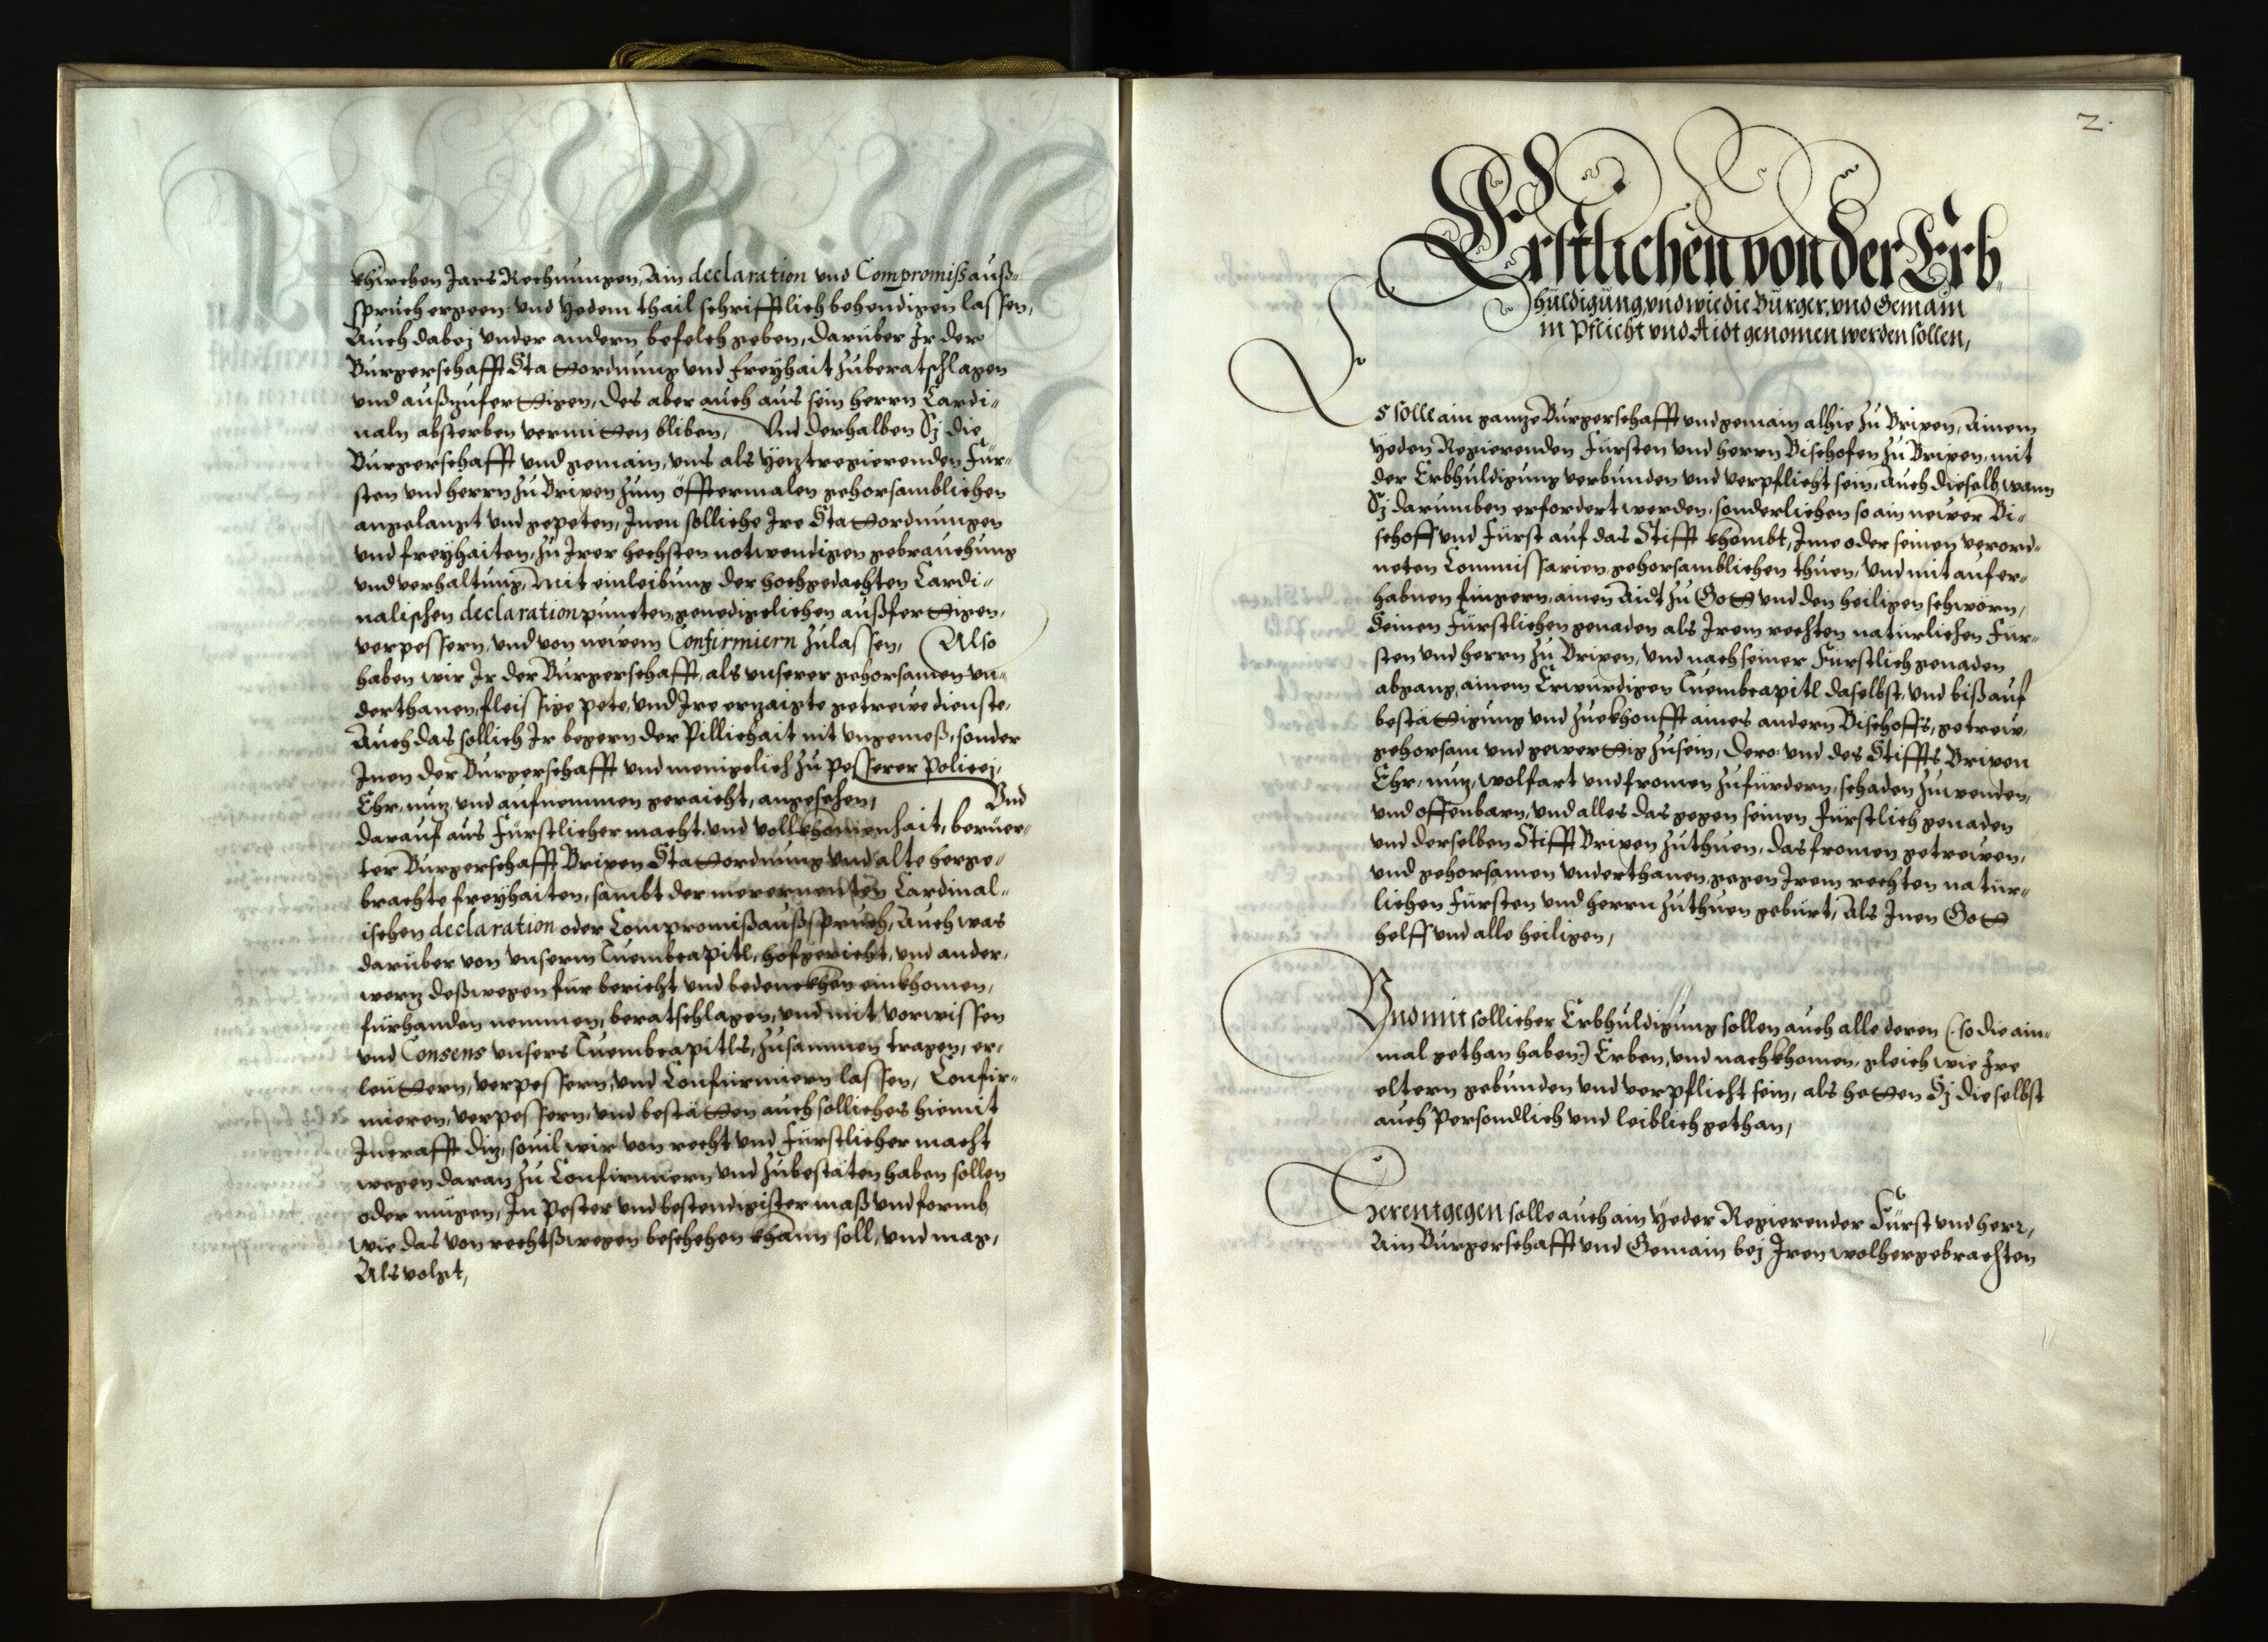 khurtzen Jars Rechnungen, Ain declaration vnd Compromiß auß-
spruch ergeen: vnd yedem thail schrifftlich behendigen lassen,
Auch dabej vnder andern befelch geben, darüber Ir der
Burgerschafft Stattordnung vnd freyhait zuberatschlagen
vnd außzufertigen, des aber auch aus sein herrn Cardi-
naln absterben vermitten bliben, Vnd derhalben Sj die
Burgerschafft vnd gemain, vns als yetz regierenden Für-
sten vnd herrn zu Brixen zum öfftermalen gehorsamblichen
angelangt vnd gepeten, Inen solliche Ire Stattordnungen
vnd freyhaiten, zu Irer hechsten notwendigen gebrauchung
vnd verhaltung, mit einleibung der hochgedachten Cardi-
nalischen declaration puncten genedigelichen außfertigen,
verpessern, vnd von newem Confirmiern zulassen, Also
haben wir Ir der Burgerschafft, als vnserer gehorsamen vn-
derthanen, fleissige pete, vnd Ire erzaigte getrewe dienste,
Auch das sollich Ir begern der Pillichait nit vngemeß, sonder
Inen der Burgerschafft vnd menigelich zu pesserer Policej,
Ehr, nutz vnd aufnemmen geraicht, angesehen, Vnd
darauf aus Fürstlicher macht, vnd vollkhomenhait, berüer-
ter Burgerschafft Brixen Stattordnung vnd alte herge-
brachte freyhaiten, sambt der merernenten Cardinal-
ischen declaration oder Compromißaußspruch, Auch was
darüber von vnserm Tuembcapitl, hofgericht, vnd ander-
werz deßwegen für bericht vnd bedenckhen einkhomen,
fürhanden nemmen, beratschlagen, vnd mit vorwissen
vnd Consens vnsers Tuembcapitls, zusammen tragen, er-
leuttern, verpessern, vnd Confirmiern lassen, Confir-
mieren, verpessern, vnd bestätten auch solliches hiemit
Incrafft diz, souil wir von recht vnd Fürstlicher macht
wegen daran zu Confirmiern vnd zubestäten haben sollen
oder mügen, In Pester vnd bestendigister maß vnd formb,
wie das von rechtßwegen beschehen khann soll, vnd mag,
Als volgt,
2.
Erstlichen von der Erb-
huldigung, vnd wie die Burger, vnd Gemain
in Pflicht vnd Aidt genomen werden sollen,
Es solle ain gantze Burgerschafft vnd gemain alhie zu Brixen, Ainem
yeden Regierenden Fürsten vnd herrn Bischofen zu Brixen, mit
der Erbhuldigung verbunden vnd verpflicht sein, Auch dieselb, wann
Sj darumben erfordert werden, sonderlichen so ain newer Bi-
schoff vnd Fürst auf das Stifft khombt, Ime oder seinen verord-
neten Commissarien gehorsamblichen thuen, Vnd mit aufer-
habnen fingern, ainen Aidt zu Gott vnd den heiligen schwörn,
Seinen Fürstlichen genaden als Irem rechten natürlichen Für-
sten vnd herrn zu Brixen, vnd nach seiner Fürstlich genaden
abgang, ainem Erwürdigen Tuembcapitl daselbst, vnd biß auf
bestättigung vnd zuekhonfft aines andern Bischoffs, getrew,
gehorsam vnd gewerttig zusein, Dero: vnd des Stiffts Brixen
Ehr, nutz, wolfart vnd fromen zufürdern, schaden zuwenden,
vnd offenbarn, vnd alles das gegen seinen Fürstlich genaden
vnd derselben Stifft Brixen zuthuen, das fromen getrewen,
vnd gehorsamen vnderthanen, gegen Irem rechten natür-
lichen Fürsten vnd herrn zuthuen gebürt, Als Inen Gott
helff vnd alle heiligen,
Vnd mit sollicher Erbhuldigung sollen auch alle deren (so die ain-
mal gethan haben:) Erben, vnd nachkhomen, gleich wie Ire
eltern gebunden vnd verpflicht sein, als hetten Sj die selbst
auch Persondlich vnd leiblich gethan,
Herentgegen solle auch ain yeder Regierender Fürst vnd herr,
Ain Burgerschafft vnd Gemain bej Iren wolhergebrachten